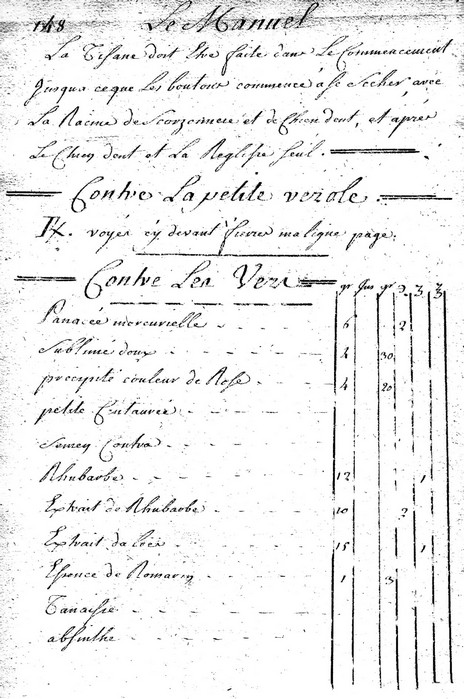 148 Le Manuel
La Tisane doit Etre faite dans Le Commencement
Jusqua ceque Les boutons commence a se Secher, avec
La Racine de Scorzonnere et de Chien dent, et aprés
Le Chien dent et La Reglisse Seul.
Contre La petite verole.
voyés cy devant fievre maligne page.
Contre Les Vers
gr Jus gr Э ʒ ℥
Panacée mercurielle 6 2
Sublimé doux 4 30
precipité couleur de Rose 4 20
petite Centaurée
Semen Contra
Rhubarbe 12 1
Extrait de Rhubarbe 10 2
Extrait daloës 15 1
Essence de Romarin 1 3
Tanaisie
absinthe